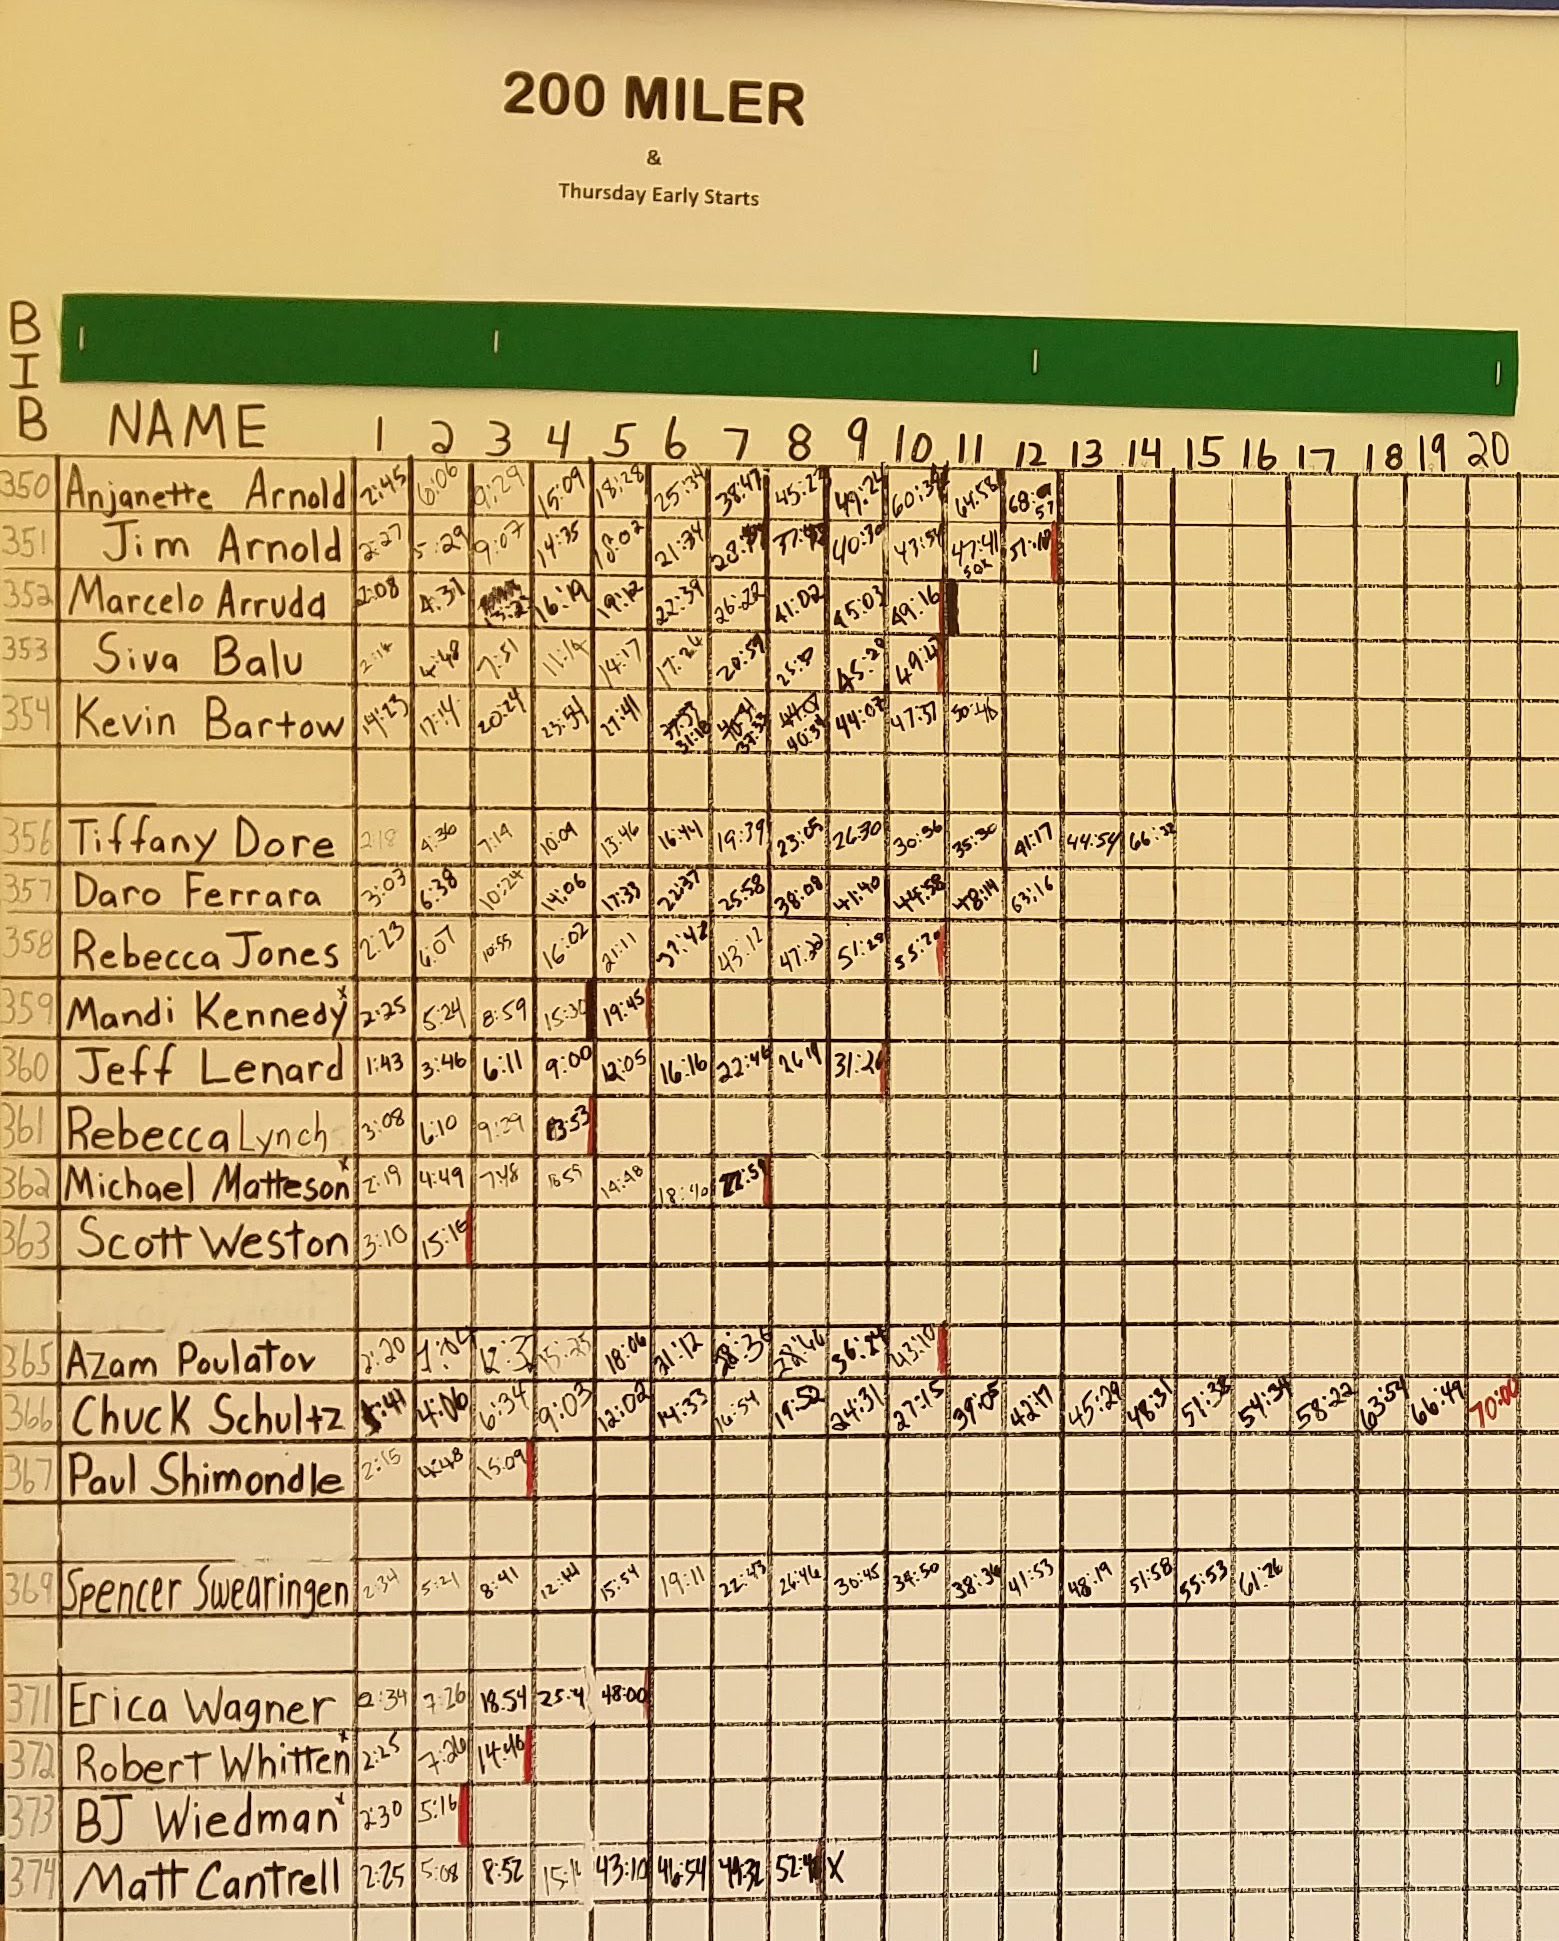 200 MILER
&
Thursday Early Starts
BIB NAME 1 2 3 4 5 6 7 8 9 10 11 12 13 14 15 16 17 18 19 20
350 Anjanette Arnold 2:45 6:06 9:29 15:09 18:28 25:34 38:47 45:27 49:24 60:34 64:58 68:57
351 Jim Arnold 2:27 5:29 9:07 14:35 18:02 21:34 40:30 43:54 47:41 50K 51:18
352 Marcelo Arruda 2:08 4:31 16:19 19:12 22:39 26:22 41:02 45:03 49:16
353 Siva Balu 2:14 4:48 7:51 11:14 14:17 17:26 20:59 45:20
354 Kevin Bartow 14:23 17:14 20:24 23:54 27:41 31:18 37:33 40:34 44:07 47:37 50:46
356 Tiffany Dore 2:18 4:36 7:19 10:09 13:46 16:41 19:39 23:05 26:30 30:36 35:30 41:17 44:54 66:22
357 Daro Ferrara 3:03 6:38 10:24 14:06 17:33 22:37 25:58 38:08 41:40 44:58 48:14 63:16
358 Rebecca Jones 2:23 6:07 10:55 16:02 21:11 43:12 47:22 51:28
359 Mandi Kennedy x 2:25 5:24 8:59 15:30 19:45
360 Jeff Lenard 1:43 3:46 6:11 9:00 12:05 16:16 22:46 26:19 31:26
361 Rebecca Lynch 3:08 6:10 9:39 13:53
362 Michael Matteson x 2:19 4:49 7:48 14:48 18:40 22:59
363 Scott Weston 3:10 15:15
365 Azam Poulatov 2:20 15:25 18:06 21:12 36:24 43:10
366 Chuck Schultz 1:41 4:06 6:34 9:03 12:02 14:33 16:54 19:52 24:31 27:15 39:05 42:17 45:29 48:31 51:38 54:34 58:22 63:54 66:49 70:00
367 Paul Shimondle 2:15 4:48 15:09
369 Spencer Swearingen 2:34 5:21 8:41 12:44 15:54 19:11 22:43 26:46 30:45 34:50 38:36 41:53 48:19 51:58 55:53 61:26
371 Erica Wagner 2:34 7:26 18:54 48:00
372 Robert Whitten x 2:25 7:26 14:46
373 BJ Wiedman x 2:30 5:16
374 Matt Cantrell 2:25 5:08 8:52 43:10 46:54 49:32 X